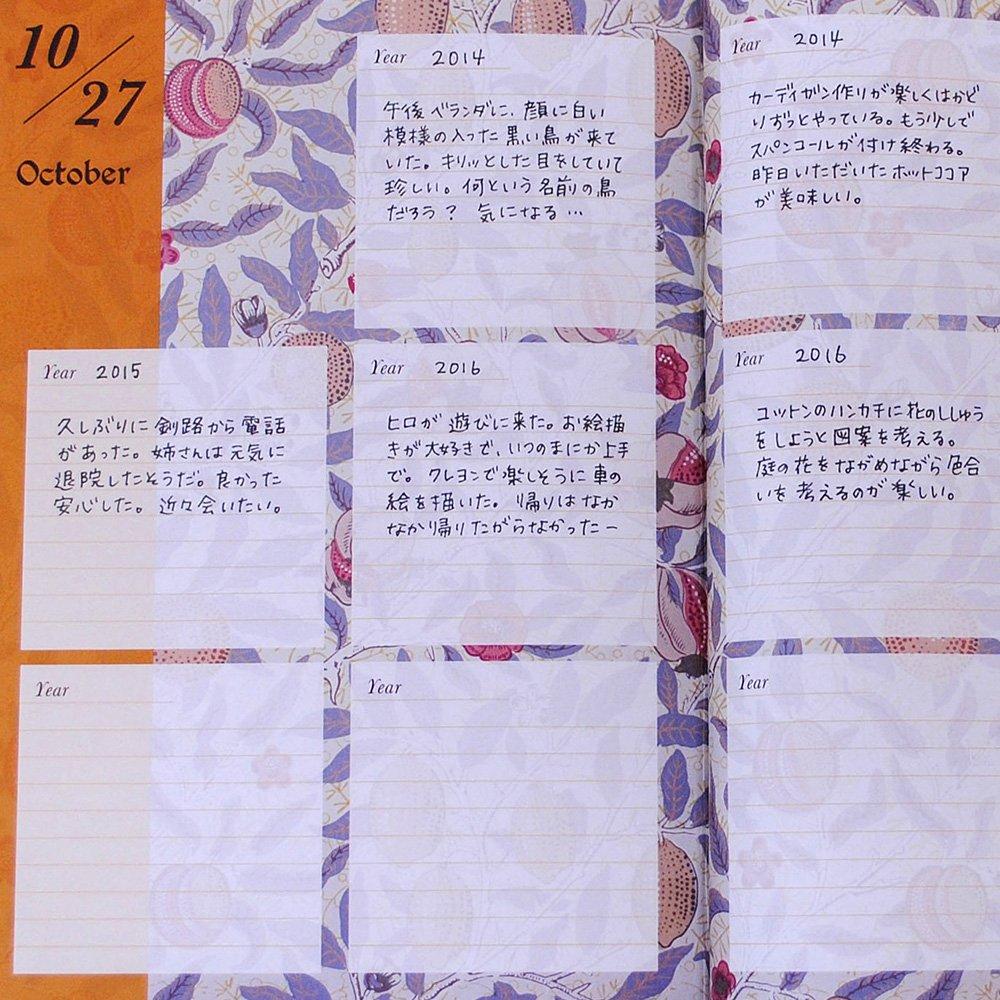 10/27
October
Year 2014
午後ベランダに、顔に白い
模様の入った黒い鳥が来て
いた。キリッとした目をしていて
珍しい。何という名前の鳥
だろう? 気になる…
Year 2014
カーディガン作りが楽しくはかど
りずっとやっている。もう少しで
スパンコールが付け終わる。
昨日いただいたホットココア
が美味しい。
Year 2015
久しぶりに釧路から電話
があった。姉さんは元気に
退院したそうだ。良かった
安心した。近々会いたい。
Year 2016
ヒロが遊びに来た。お絵描
きが大好きで、いつのまにか上手
で。クレヨンで楽しそうに車の
絵を描いた。帰りはなか
なか帰りたがらなかったー
Year 2016
コットンのハンカチに花のししゅう
をしようと図案を考える。
庭の花をながめながら色合
いを考えるのが楽しい。
Year
Year
Year